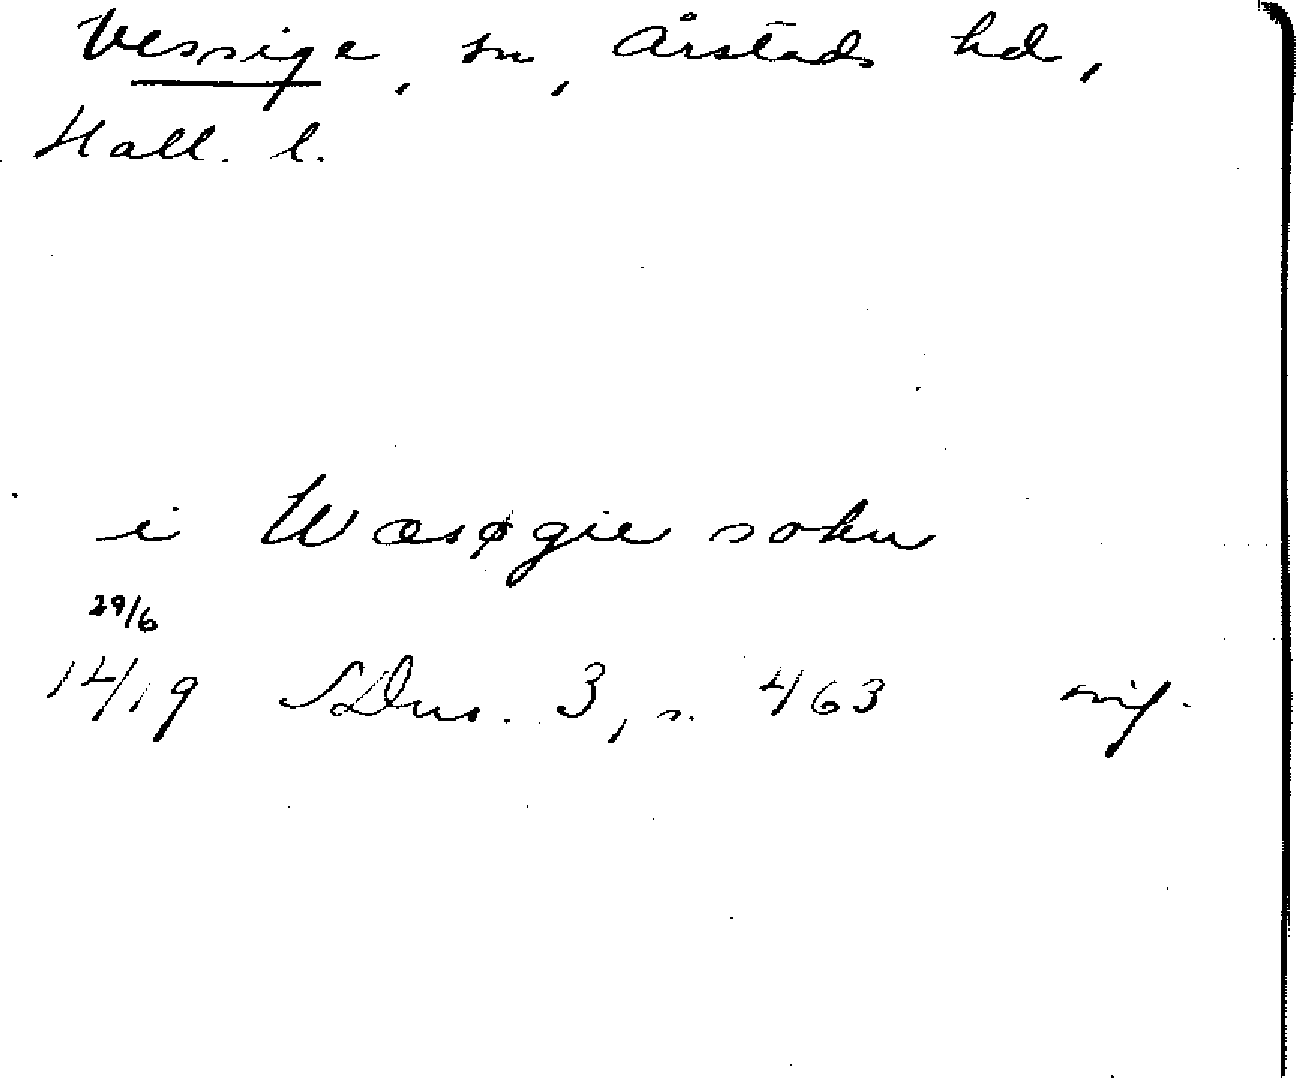 Vessige, sn, Årstads hd,
Hall. l.
i Wæsøgie sokn
29/6
1419 SDns. 3, s. 463 sig.